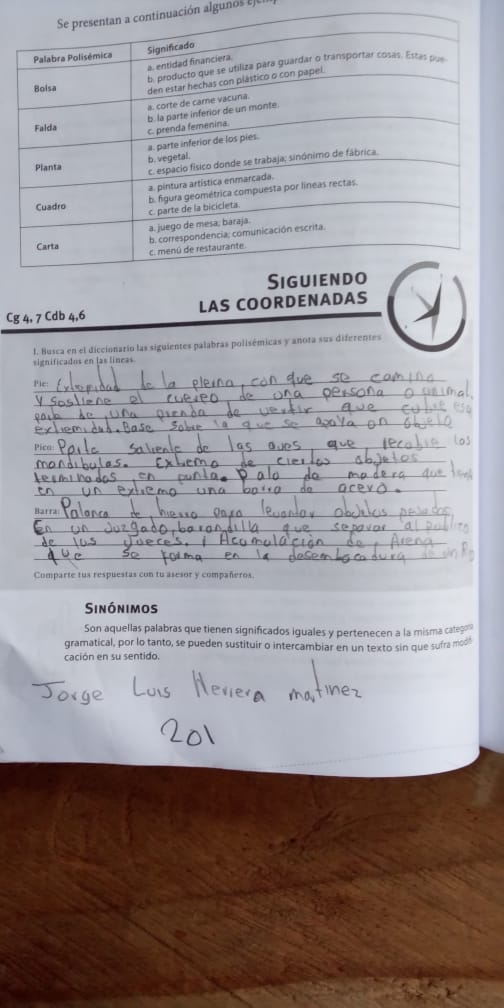 Se presentan a continuación algunos
Palabra Polisémica
Significado
Bolsa
a. entidad financiera.
b. producto que se utiliza para guardar o transportar cosas. Estas pue-
den estar hechas con plástico o con papel.
Falda
a. corte de carne vacuna.
b. la parte inferior de un monte.
c. prenda femenina.
Planta
a. parte inferior de los pies.
b. vegetal.
c. espacio físico donde se trabaja; sinónimo de fábrica.
Cuadro
a. pintura artística enmarcada.
b. figura geométrica compuesta por líneas rectas.
c. parte de la bicicleta.
Carta
a. juego de mesa; baraja.
b. correspondencia; comunicación escrita.
c. menú de restaurante.
SIGUIENDO
LAS COORDENADAS
Cg 4, 7 Cdb 4,6
1. Busca en el diccionario las siguientes palabras polisémicas y anota sus diferentes
significados en las líneas.
Pie: Extremidad de la pierna, con que se camina
y sostiene el cuerpo de una persona o animal.
parte de una prenda de vestir que cubre esa
extremidad. Base sobre la que se apoya un objeto
Pico: Parte saliente de las aves que recubre los
mandibulas. Extremo de ciertos objetos
terminados en punta. Palo de madera que tiene
en un extremo una barra de acero.
Barra: Palanca de hierro para levantar objetos pesados
En un Juzgado, barandilla que separar al publico
de los jueces. Acomulación de Arena
que se forma en la desembocadura de un Rio
Comparte tus respuestas con tu asesor y compañeros.
SINÓNIMOS
Son aquellas palabras que tienen significados iguales y pertenecen a la misma categoría
gramatical, por lo tanto, se pueden sustituir o intercambiar en un texto sin que sufra modifi-
cación en su sentido.
Jorge Luis Herrera martinez
201